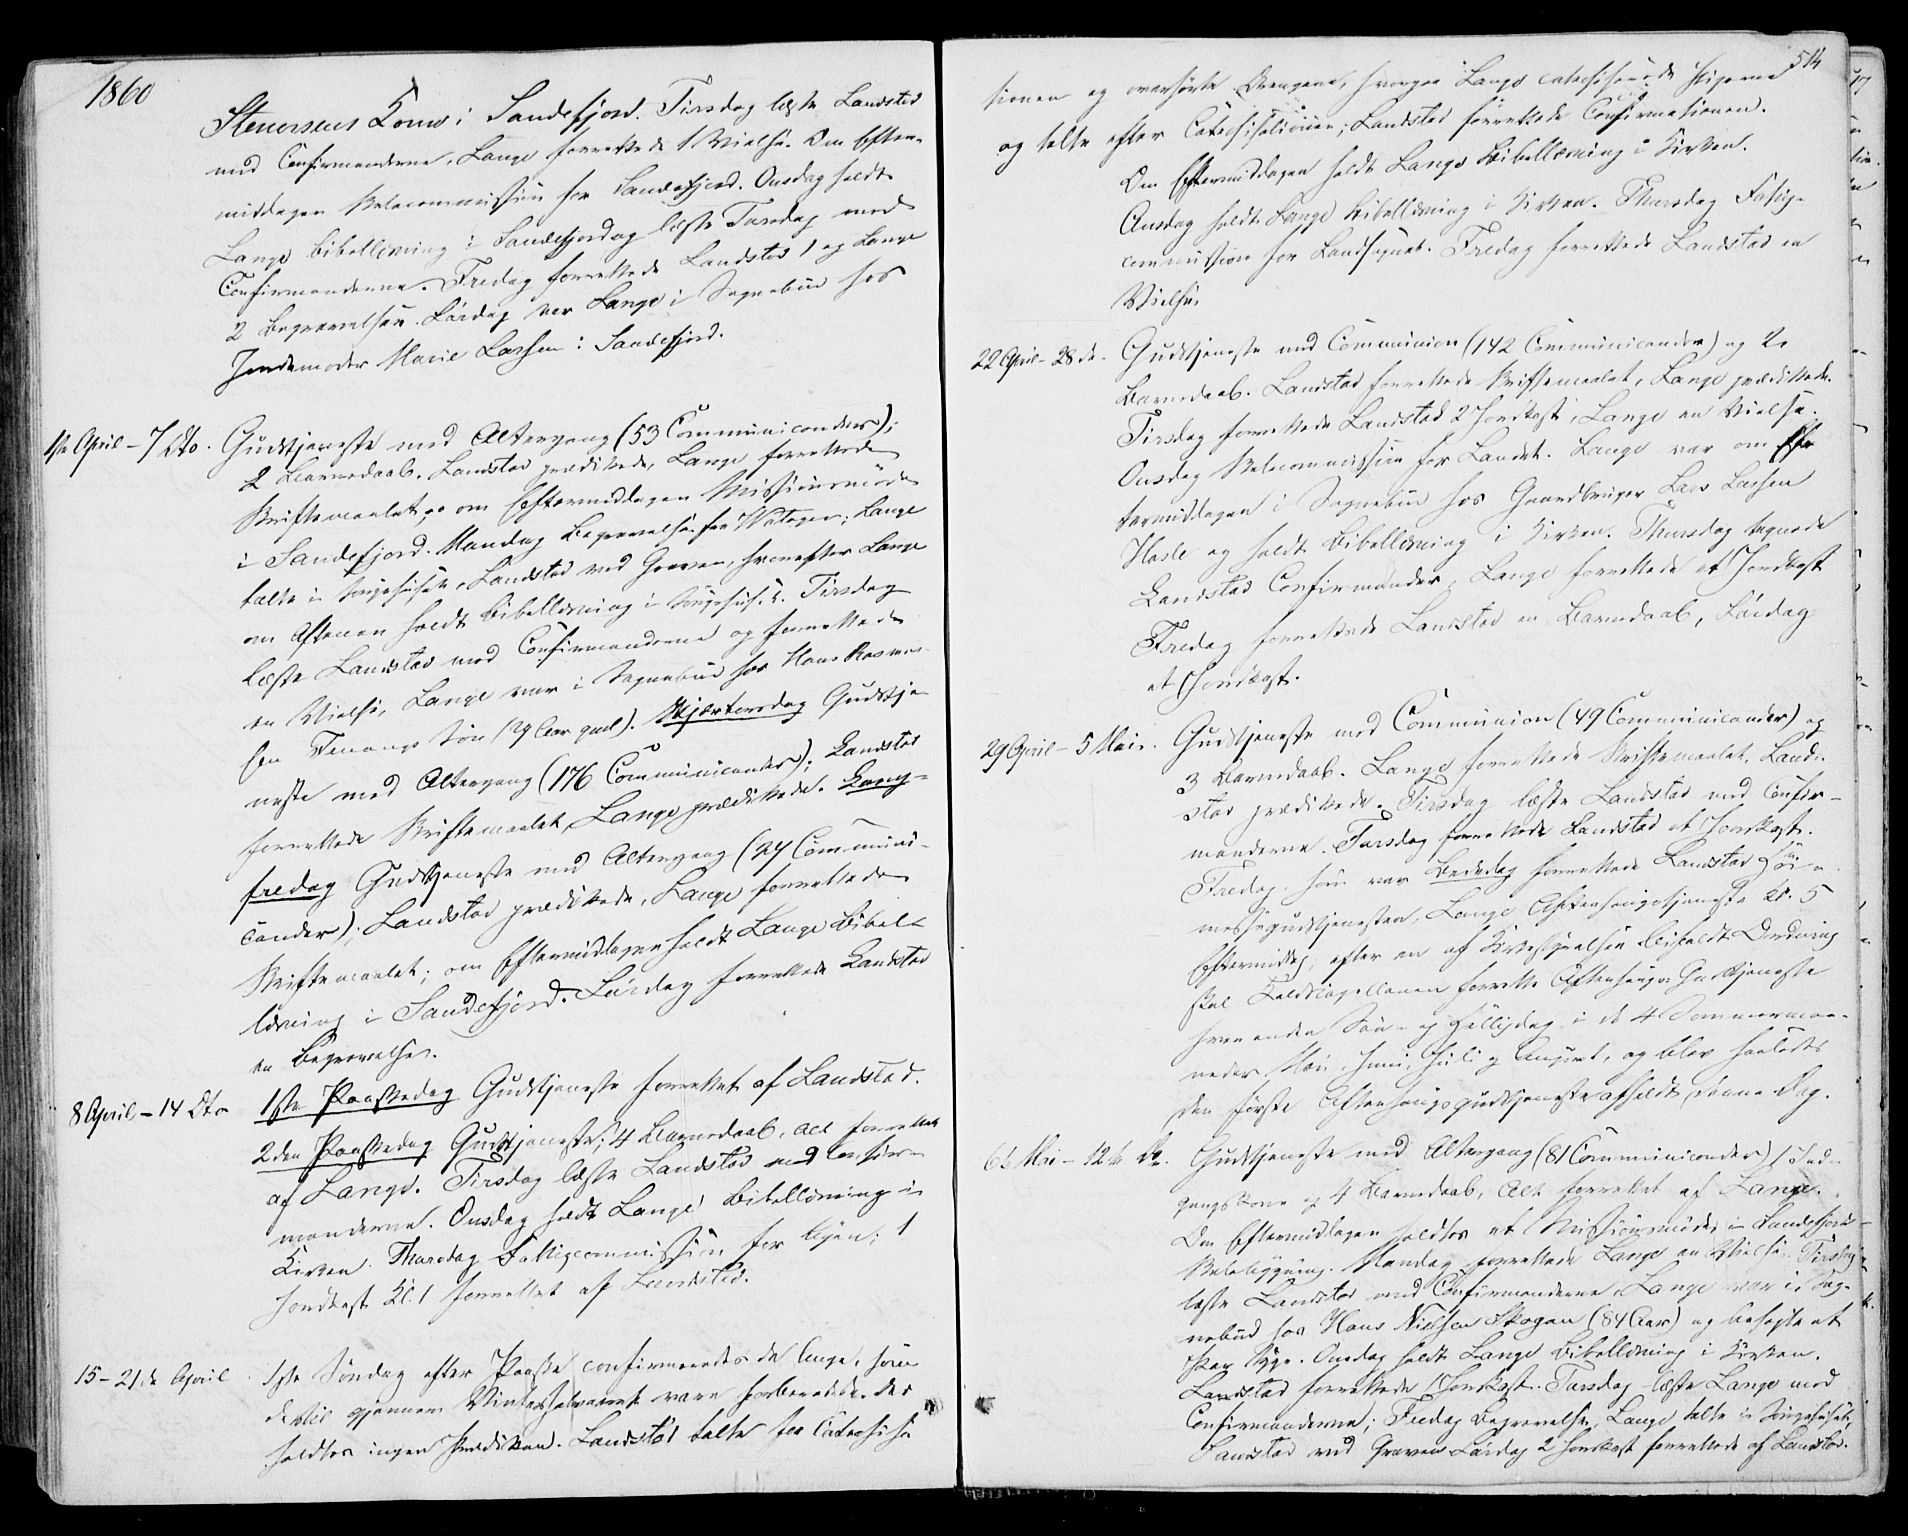 1860
Stenersens Kone i Sandefjord. Tirsdag læste Landstad
med Confirmanderne, Lange forrettede 1 Vielse. Om Efter-
middagen Skolecommission for Sandefjord. Onsdag holdt
Lange Bibellæsning i Sandefjord og læste Torsdag med
Confirmanderne. Fredag forrettede Landstad 1 og Lange
2 Begravelser. Lørdag var Lange i Sognebud hos
Jordemoder Marie Larsen i Sandefjord.
1ste April - 7 Dto. Gudstjeneste med Altergang (53 Communicander);
2 Barnedaab. Landstad prædikede, Lange forrettede
Skriftemaalet, om Eftermiddagen Missionsmøde
i Sandefjord. Mandag Begravelse fra ; Lange
talte i Sørgehuset, Landstad ved Graven, hvorefter Lange
om Aftenen holdt Bibellæsning i Sørgehuset. Tirsdag
læste Landstad med Confirmanderne og forrettede
en Vielse, Lange var i Sognebud hos Hans Rasmus-
sen Søn (29 Aar gml). Skjærtorsdag Gudstje-
neste med Altergang (176 Communicander); Landstad
forrettede Skriftemaalet, Lange prædikede. Lang-
fredag Gudstjeneste med Altergang (24 Communi-
cander); Landstad prædikede, Lange forrettede
Skriftemaalet; om Eftermiddagen holdt Lange Bibel-
læsning i Sandefjord. Lørdag forrettede Landstad
en Begravelse.
8 April - 14 Dto 1ste Paaskedag Gudstjeneste forrettet af Landstad.
2den Paaskedag Gudstjeneste, 4 Barnedaab, Alt forrettet
af Lange. Tirsdag læste Landstad med Confir-
manderne. Onsdag holdt Lange Bibellæsning i
Kirken. Thorsdag Fattigcommission for Byen; 1
Jordkast Kl. 1 forrettet af Landstad.
15 - 21de April 1ste Søndag efter Paaske confirmeredes de Unge, som
dertil gjennem Vinterhalvaaret vare forberedede. Der
holdtes ingen Prædiken. Landstad talte før Catechisa-
514
tionen og overhørte Drengene, hvorpaa Lange catechiserede Pigerne
og talte efter Catechisationen; Landstad forrettede Confirmationen.
Om Eftermiddagen holdt Lange Bibellæsning i Kirken.
Onsdag holdt Lange Bibellæsning i Kirken. Thorsdag Fattig-
commission for Landsognet. Fredag forrettede Landstad en
Vielse.
22 April - 28 do. Gudstjeneste med Communion (142 Communicander) og 2
Barnedaab. Landstad forrettede Skriftemaalet, Lange prædikede.
Tirsdag forrettede Landstad 2 Jordkast, Lange en Vielse.
Onsdag Skolecommission for Landet. Lange var om Ef-
termiddagen i Sognebud hos Gaardbruger Lars Larsen
Hasle og holdt Bibellæsning i Kirken. Thorsdag tegnede
Landstad Confirmander, Lange forrettede et Jordkast
Fredag forrettede Landstad en Barnedaab, Lørdag
et Jordkast.
29 April - 5 Mai. Gudstjeneste med Communion (49 Communicander) og
3 Barnedaab. Lange forrettede Skriftemaalet, Land-
stad prædikede. Tirsdag læste Landstad med Confir-
manderne. Torsdag forrettede Landstad et Jordkast.
Fredag, som var Bededag forrettede Landstad Høi-
messegudstjenesten, Lange Aftensangstjeneste Kl. 5
Eftermiddag; efter en af Kirkestyrelsen bifaldt Ordning
skal Feldkapellanen forrette Aftensangs Gudstjeneste
hver anden Søn- og Helligdag i de 4 Sommermaa-
neder Mai, Juni, Juli og August, og blev saaledes
den første Aftensangsgudstjeneste afholdt denne Dag.
6te Mai - 12te Do. Gudstjeneste med Altergang (81 Communicander) 1 Ind-
gangskone og 4 Barnedaab, Alt forrettet af Lange.
Om Eftermiddagen holdtes et Missionsmøde i Sandefjords
Skolebygning. Mandag forrettede Lange en Vielse. Tirsdag
læste Landstad med Confirmanderne, Lange var i Sog-
nebud hos Hans Nielsen Skogan (84 Aar) og besøgte et
Par Syge. Onsdag holdt Lange Bibellæsning i Kirken.
Landstad forrettede 1 Jordkast. Torsdag læste Lange med
Confirmanderne; Fredag Begravelse, Lange talte i Sørgehuset,
Landstad ved Graven. Lørdag 2 Jordkast forrettede af Landstad.